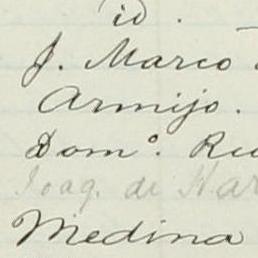 id.
J. Marco
Armijo.
Domº.
Joaq. de
Medina